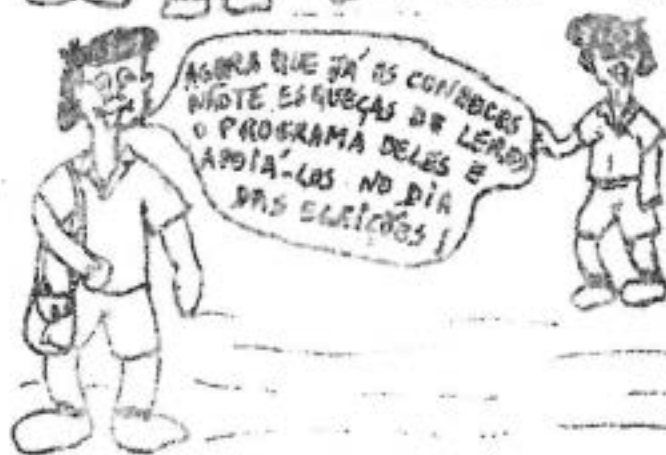 AGORA QUE JÁ OS CONHECES
NÃO TE ESQUEÇAS DE LERES
O PROGRAMA DELES E
APOIÁ-LOS NO DIA
DAS ELEIÇÕES!